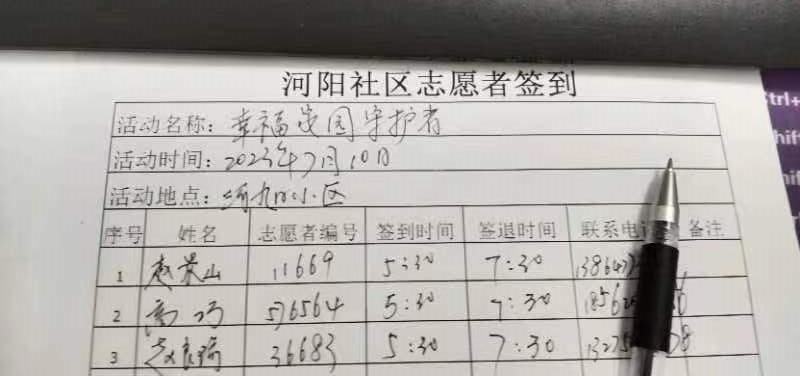 河阳社区志愿者签到
活动名称：幸福家园守护者
活动时间：2023年7月10日
活动地点：小区
序号 姓名 志愿者编号 签到时间 签退时间 联系电 备注
1 赵景山 11669 5:30 7:30
2 高巧 576564 5:30 7:30
3 36683 5:30 7:30
trl+
hif
hif